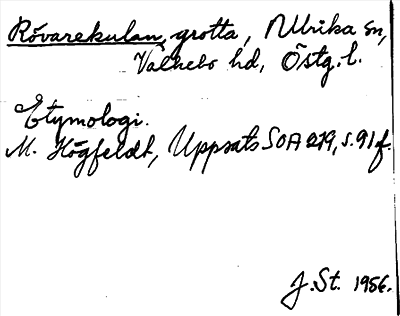 Rövarekulan, grotta, Ulrika sn,
Valkebo hd, Östg. l.
Etymologi.
M. Högfeldt, Uppsats SOA 279, s. 91 f.
J. St. 1956.